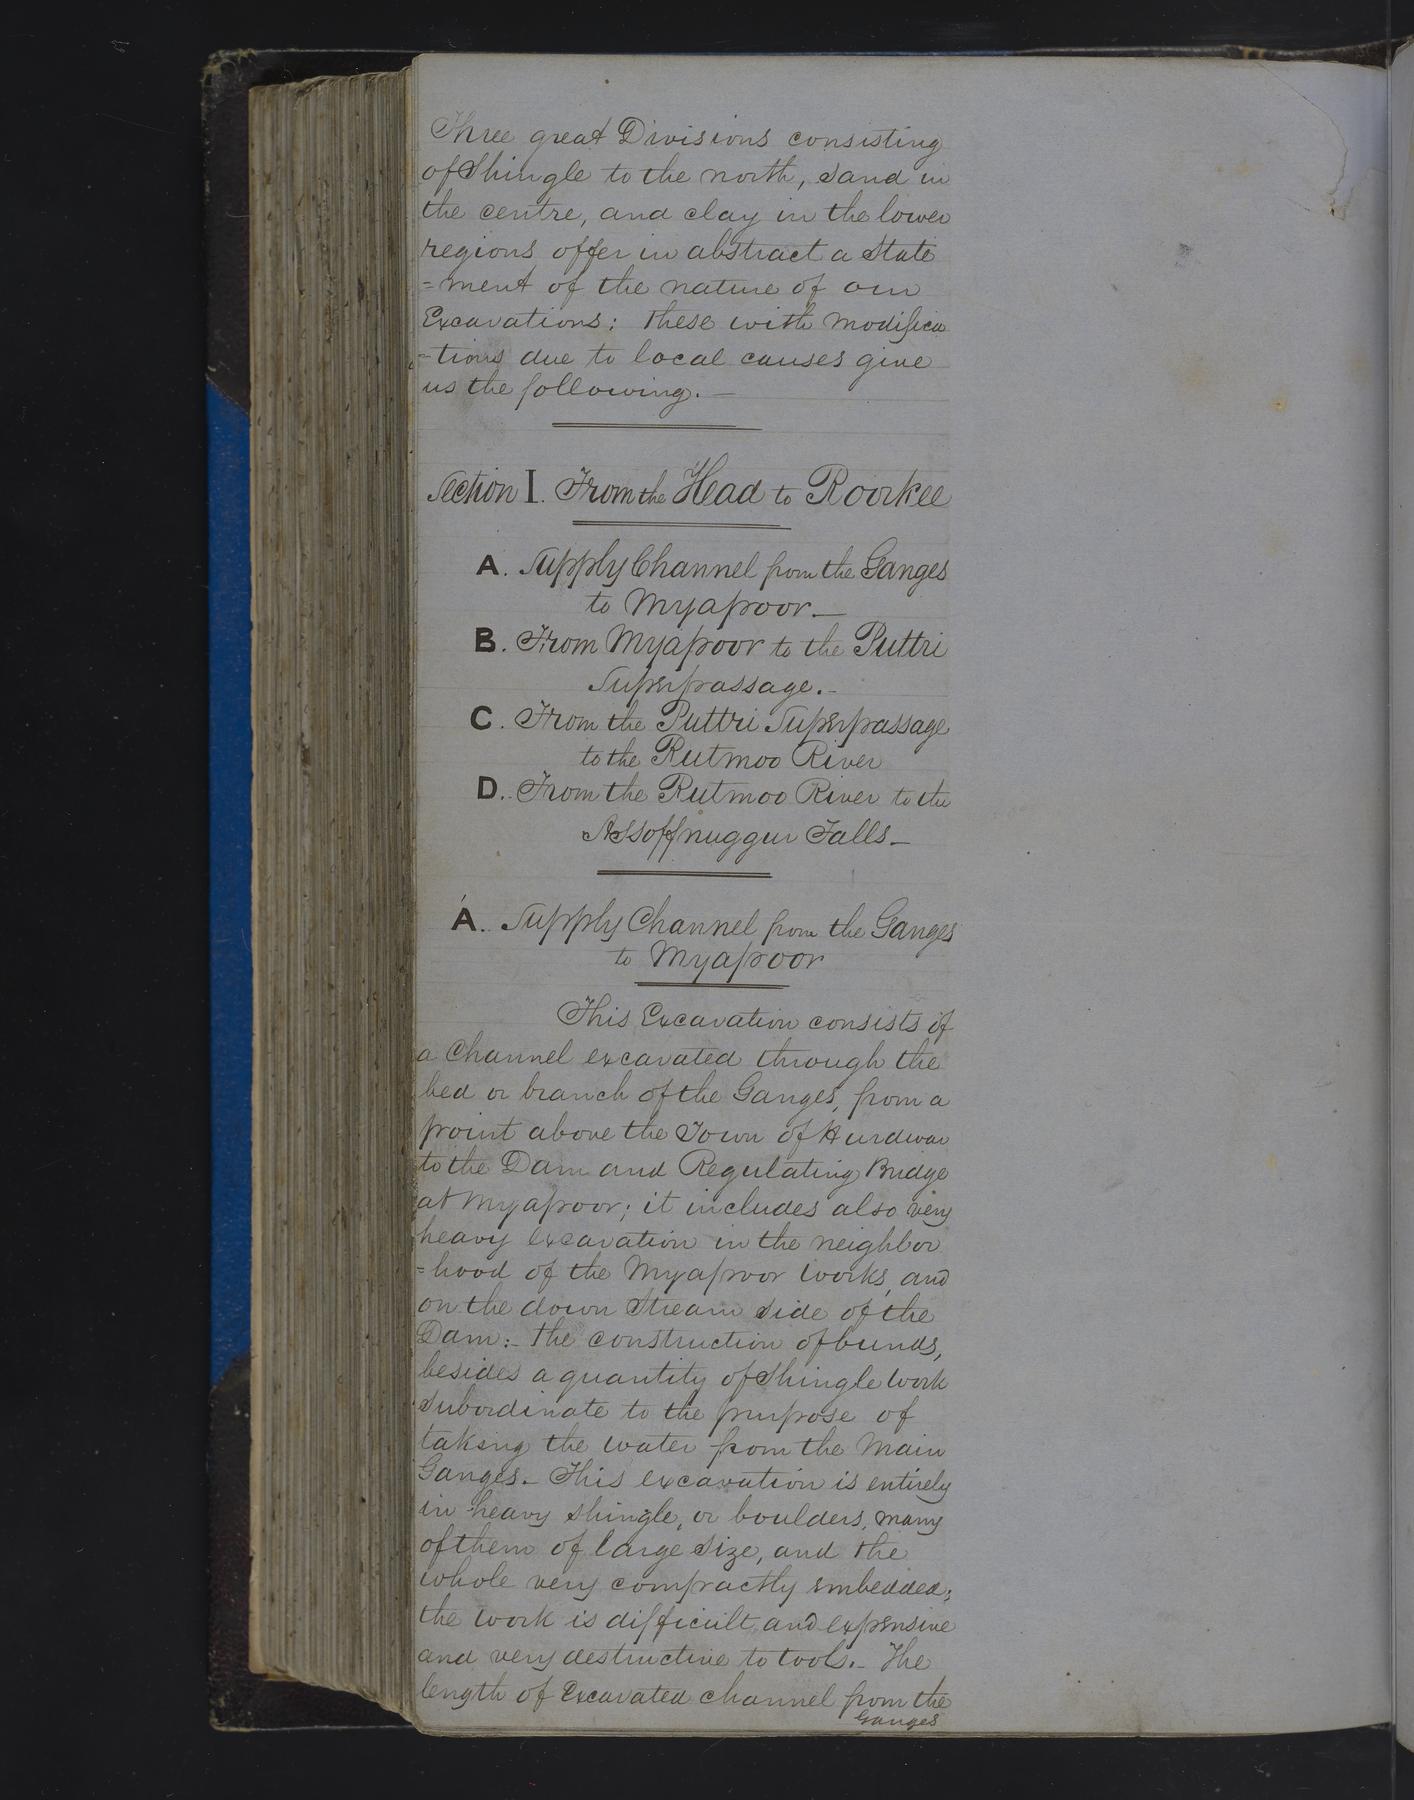 Three great Divisions consisting
of Shingle to the north, Sand in
the centre, and clay in the lower
regions offer in abstract a State
=ment of the nature of our
Excavations: these with modifica
=tions due to local causes give
us the following. —
Section I. From the Head to Roorkee
A. Supply Channel from the Ganges
to Myapoor. —
B. From Myapoor to the Puttri
Superpassage. -
C. From the Puttri Superpassage
to the Rutmoo River
D. From the Rutmoo River to the
Assoffnuggur Falls —
A. Supply Channel from the Ganges
to Myapoor
This Excavation consists of
a Channel excavated through the
bed or branch of the Ganges, from a
point above the Town of Hurdwar
to the Dam and Regulating Bridge
at Myapoor; it includes also very
heavy excavation in the neighbor
=hood of the Myapoor works, and
on the down Stream Side of the
Dam:- the construction of bunds,
besides a quantity of Shingle work
Subordinate to the purpose of
taking the water from the Main
Ganges. - This excavation is entirely
in heavy shingle, or boulders, many
of them of large size, and the
whole very compactly embedded;
the work is difficult and expensive
and very destructive to tools. - The
length of Excavated channel from the
Ganges